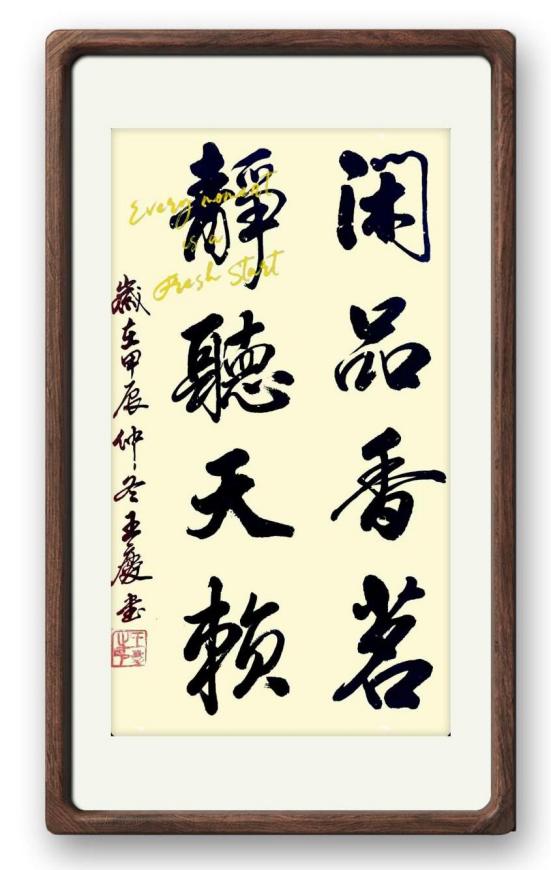 闲品香茗
靜聽天賴
歲在甲辰仲冬王慶書
Every moment
is a
Fresh Start